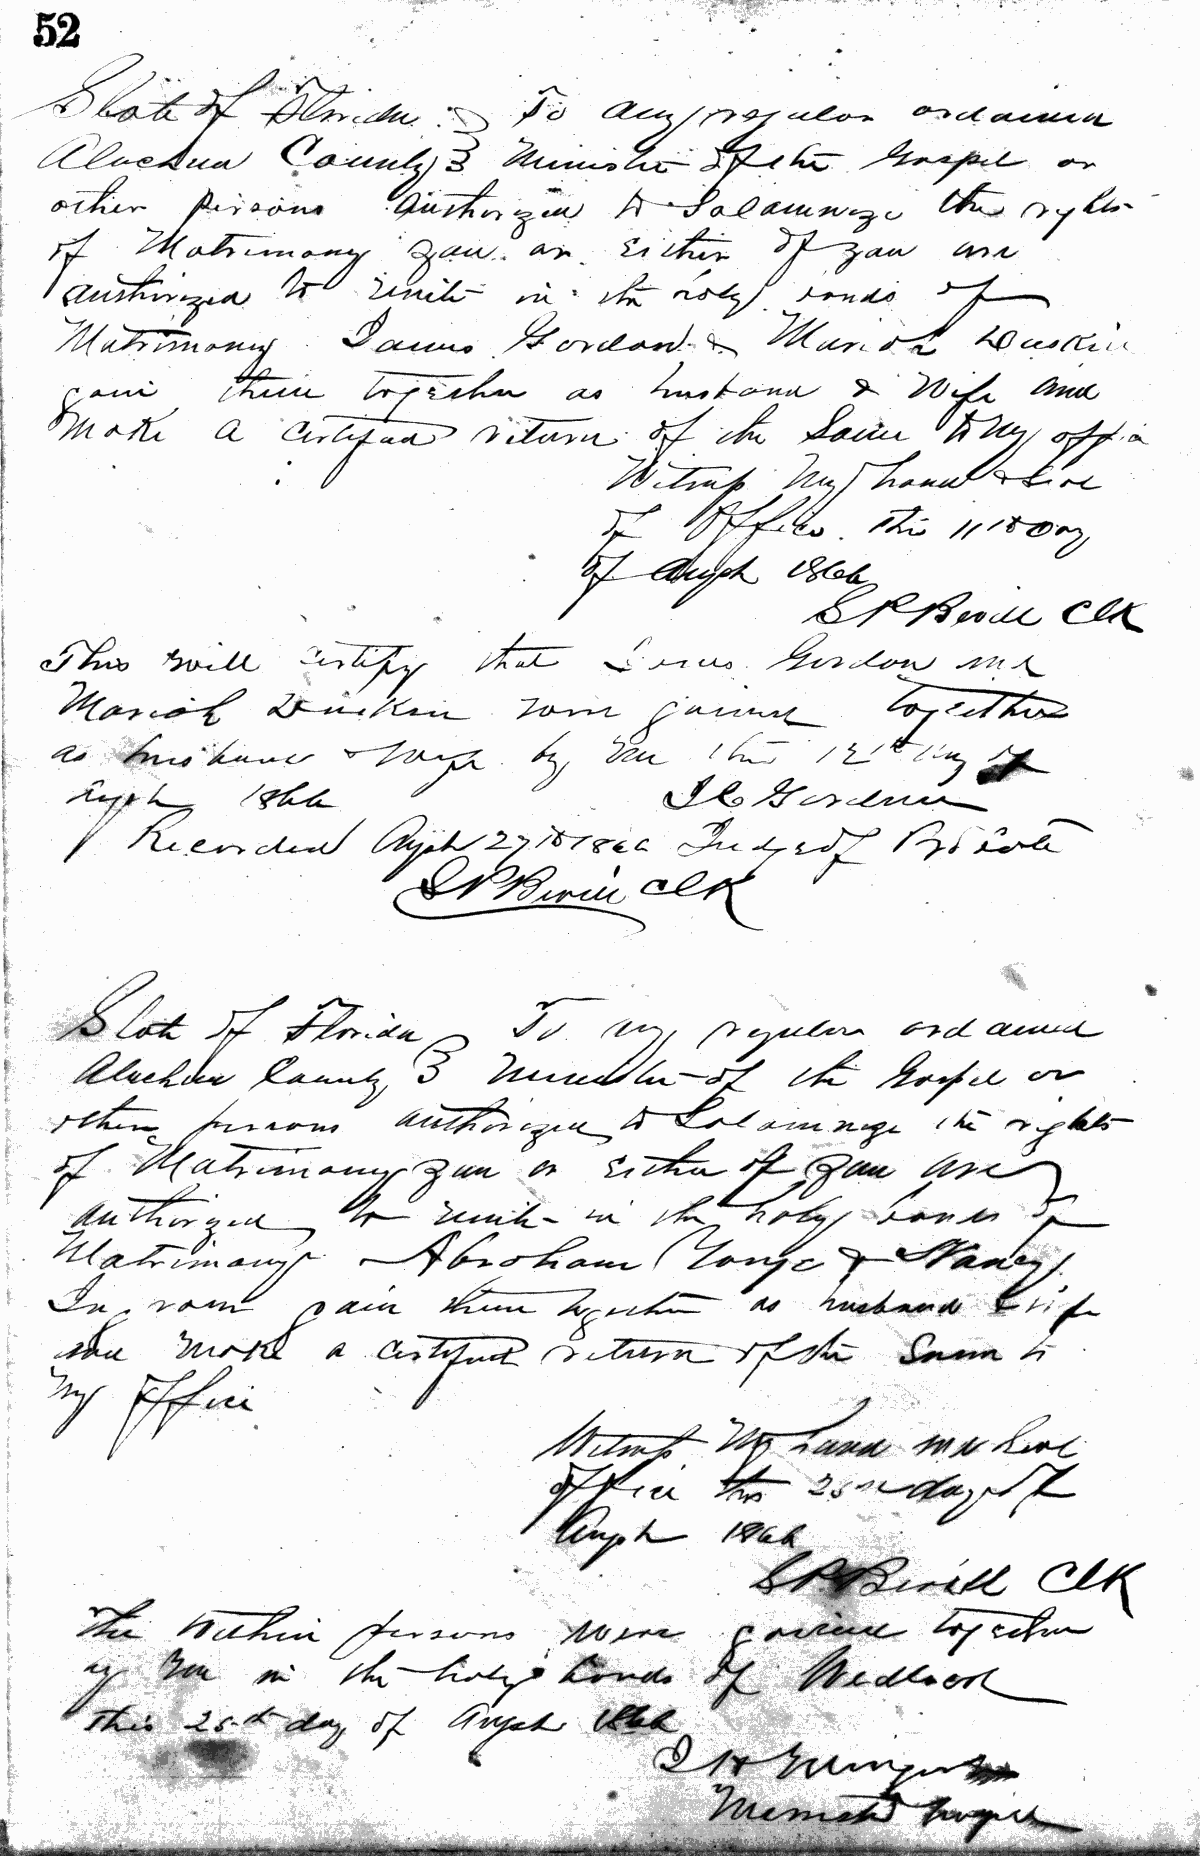 52
State of Florida } To any regular ordained
Alachua County } Minister of the Gospel or
other persons authorized to Solamnize the rights
of Matrimony you or either of you are
authorized to unite in the holy bonds of
Matrimony James Gordon & Mariah Duskin
join them together as husband & Wife and
Make a certified return of the Same to My office
Witness My hand & Seal
of Office this 11th Day
of Augst 1866
S P Bevill Clk
This will certify that James Gordon and
Mariah Duskin were joined together
as husband & Wife by me this 12th day of
Augst 1866 J C Gardner
Recorded Augst 27th 1866 Judge of Probate
S P Bevill Clk
State of Florida } To any regular ordained
Alachua County } Minister of the Gospel or
other persons authorized to Solamnize the rights
of Matrimony you or either of you are
authorized to unite in the holy bonds of
Matrimony Abraham Yonge & Nancy
join them together as husband & wife
and Make a certified return of the Same to
My Office
Witness My hand and Seal
office this day of
Augst 1866
S P Bevill Clk
The Within persons were joined together
by Me in the holy bonds of Wedlock
this 25th day of Augst 1866
Minister Gospel